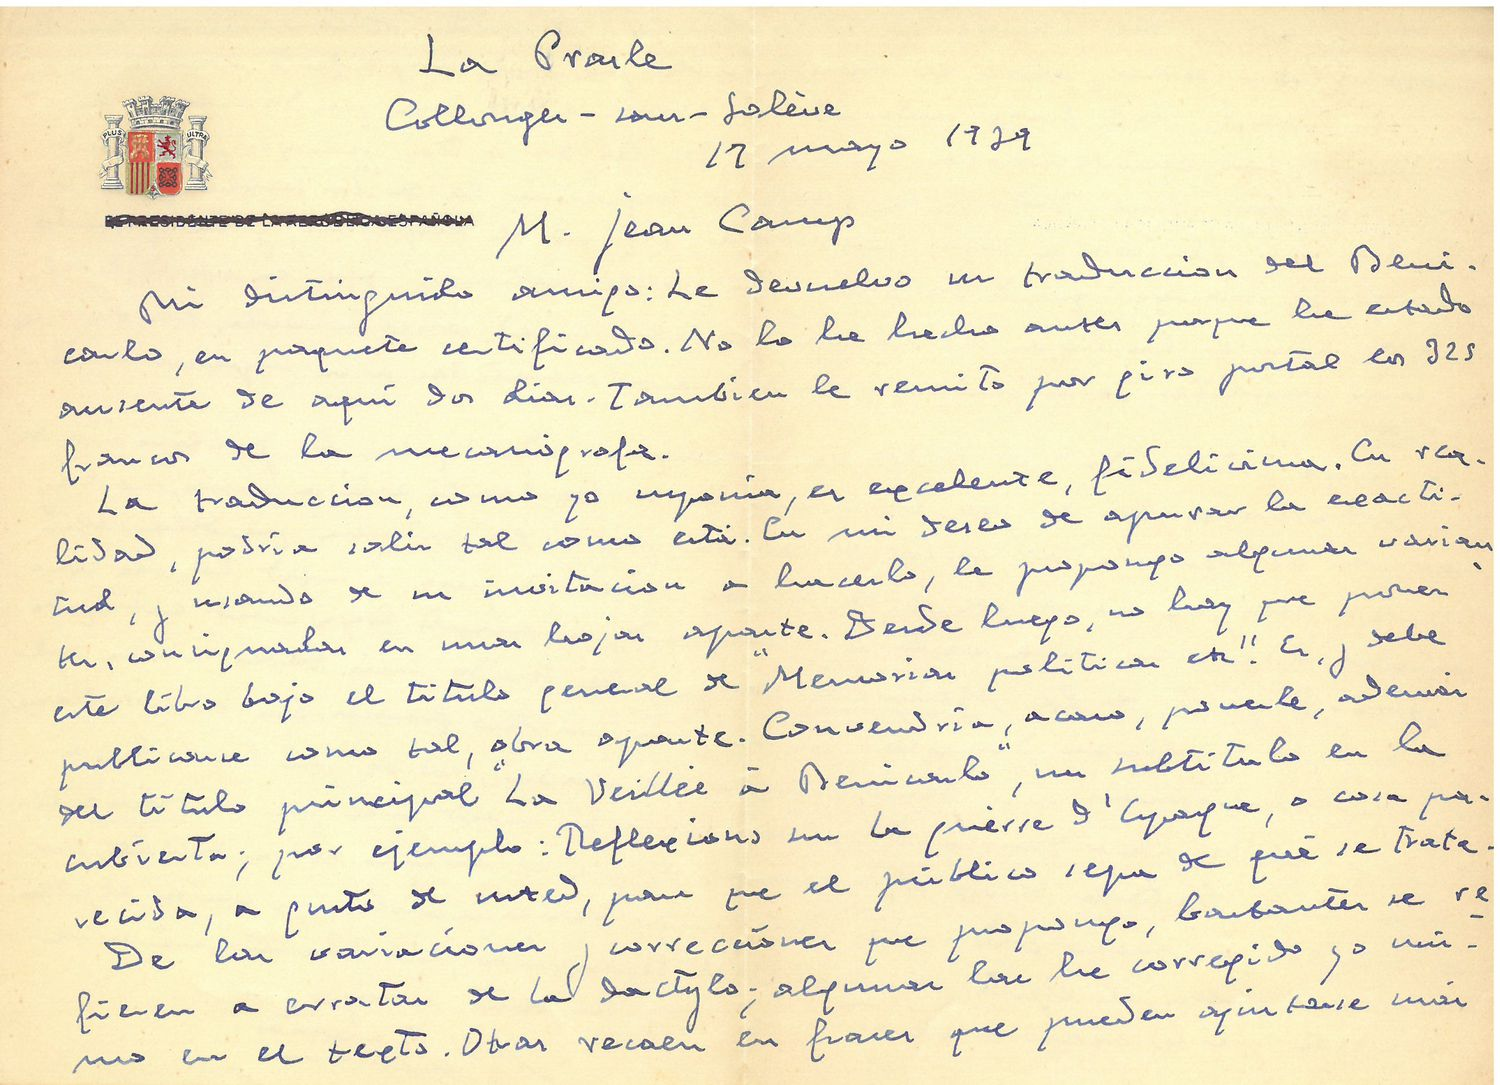 La Prasle
Collonges-sous-Salève
17 mayo 1939
PLUS ULTRA
EL PRESIDENTE DE LA REPÚBLICA ESPAÑOLA
M. Jean Camp
Mi distinguido amigo: Le devuelvo su traduccion del Beni-
carlo, en paquete certificado. No lo he hecho antes porque he estado
ausente de aquí dos dias. Tambien le remito por giro postal los 325
francos de la mecanógrafa.
La traduccion, como yo suponia, es excelente, fidelisima. En rea-
lidad, podria salir tal como está. En mi deseo de apurar la exacti-
tud, y usando de su invitacion a hacerlo, le propongo algunas varian-
tes, consignadas en unas hojas aparte. Desde luego, no hay que poner
este libro bajo el titulo general de "Memorias politicas etc". Es, y debe
publicarse como tal, obra aparte. Convendria, acaso, ponerle, además
del título principal "La Veillée à Benicarlo", un subtitulo en la
cubierta; por ejemplo: Reflexions sur la guerre d'Espagne, o cosa pa-
recida, a gusto de usted, para que el público sepa de qué se trata.
De las variaciones y correcciones que propongo, bastantes se re-
fieren a erratas de la dactylo; algunas las he corregido yo mis-
mo en el texto. Otras recaen en frases que pueden ajustarse más